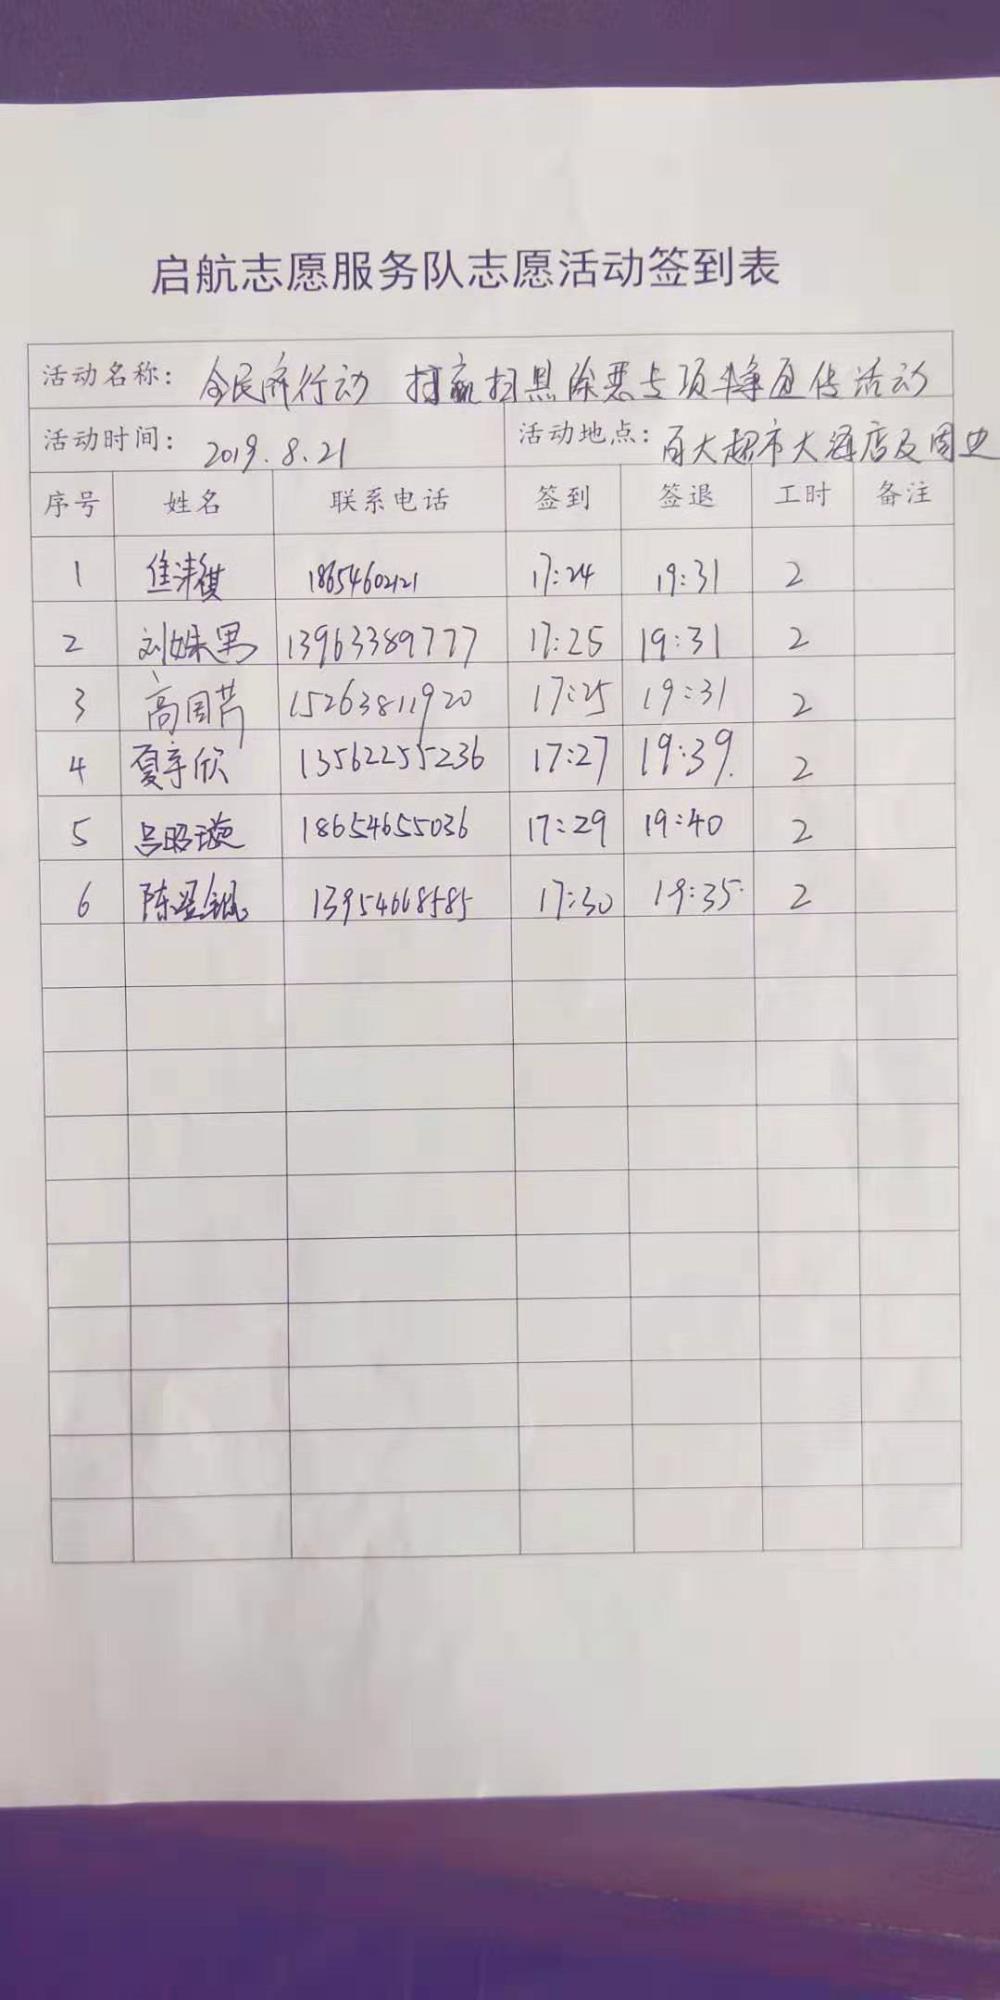 启航志愿服务队志愿活动签到表
活动名称：全民齐行动 打赢扫黑除恶专项斗争宣传活动
活动时间：2019.8.21 活动地点：百大超市大酒店及周边
序号 姓名 联系电话 签到 签退 工时 备注
1 18654602121 17:24 19:31 2
2 刘姝男 13963389777 17:25 19:31 2
3 高国芹 15263811920 17:25 19:31 2
4 夏宇欣 13562255236 17:27 19:39. 2
5 吕昭璇 18654655036 17:29 19:40 2
6 陈 13954668585 17:30 19:35 2